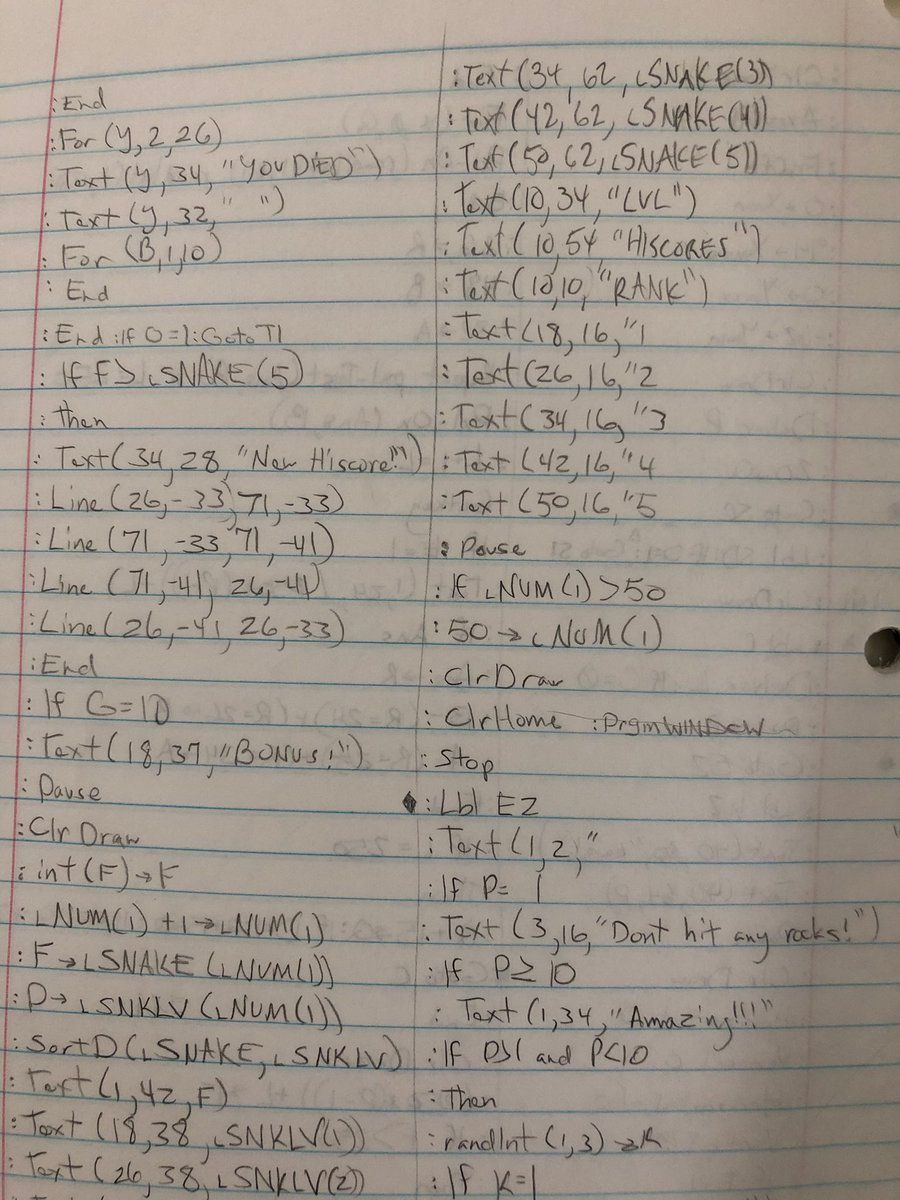 :End
:For (Y,2,26)
:Text (Y,34,"YOU DIED")
:Text (Y,32,"  ")
:For (B,1,10)
:End
:End :If O=1:Goto T1
:If F> ʟSNAKE(5)
:Then
:Text(34,28,"New Hiscore!")
:Line(26,-33,71,-33)
:Line(71,-33,71,-41)
:Line(71,-41,26,-41)
:Line(26,-41,26,-33)
:End
:If G=10
:Text(18,37,"BONUS!")
:Pause
:Clr Draw
:int(F)→F
:ʟNUM(1)+1→ʟNUM(1)
:F→ʟSNAKE(ʟNUM(1))
:P→ʟSNKLV(ʟNUM(1))
:SortD(ʟSNAKE,ʟSNKLV)
:Text(1,42,F)
:Text(18,38,ʟSNKLV(1))
:Text(26,38,ʟSNKLV(2))
:Text(34,62,ʟSNAKE(3))
:Text(42,62,ʟSNAKE(4))
:Text(50,62,ʟSNAKE(5))
:Text(10,34,"LVL")
:Text(10,54"HISCORES")
:Text(10,10,"RANK")
:Text(18,16,"1
:Text(26,16,"2
:Text(34,16,"3
:Text(42,16,"4
:Text(50,16,"5
:Pause
:If ʟNUM(1)>50
:50→ʟNUM(1)
:ClrDraw
:ClrHome :PrgmWINDOW
:Stop
:Lbl EZ
:Text(1,2,"
:If P=1
:Text(3,16,"Dont hit any rocks!")
:If P≥10
:Text(1,34,"Amazing!!!"
:If P>1 and P<10
:Then
:randInt(1,3)→K
:If K=1